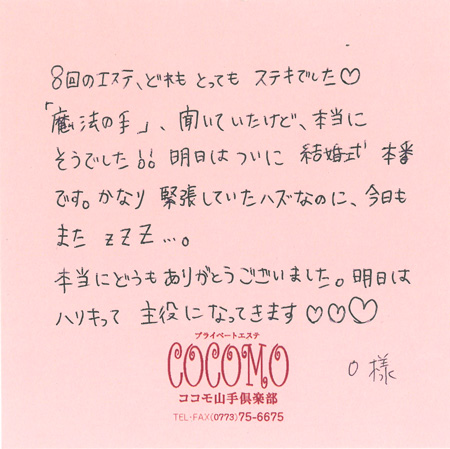 8回のエステ、どれもとってもステキでした♡
「魔法の手」、聞いていたけど、本当に
そうでした!! 明日はついに 結婚式 本番
です。かなり 緊張していたハズなのに、今日も
また zzZ…。
本当にどうもありがとうございました。明日は
ハリキって 主役になってきます♡♡♡
プライベートエステ
COCOMO
ココモ山手倶楽部
TEL・FAX(0773)75-6675
O様